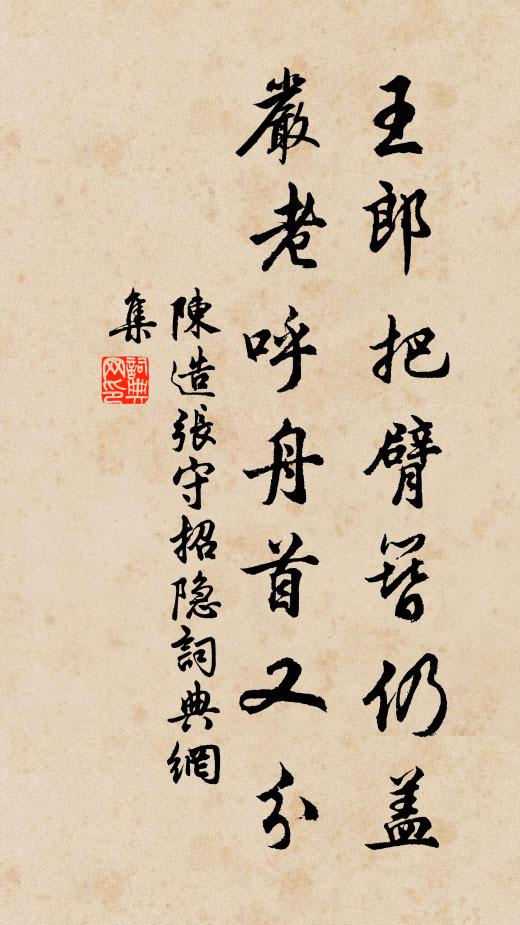 王郎把臂簪仍盖
嚴老呼舟首又分
陳造張守招隐詞典網
集
詞典網印